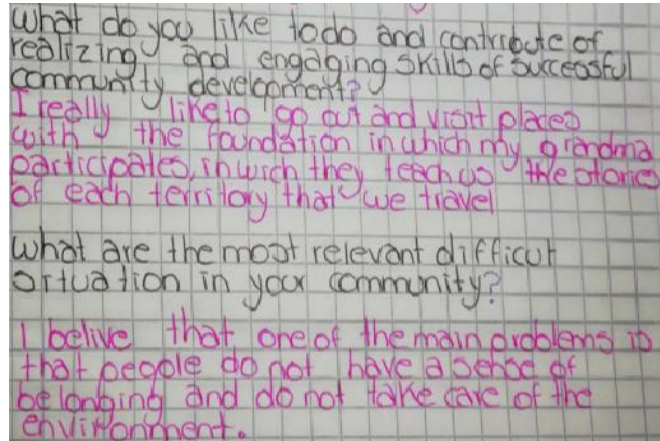 What do you like to do and contribute of
realizing and engaging skills of successful
community development?
I really like to go out and visit places
with the foundation in which my grandma
participates, in wich they teach us the stories
of each territory that we travel
What are the most relevant difficut
situation in your community?
I belive that one of the main problems is
that people do not have a sense of
belonging and do not take care of the
environment.